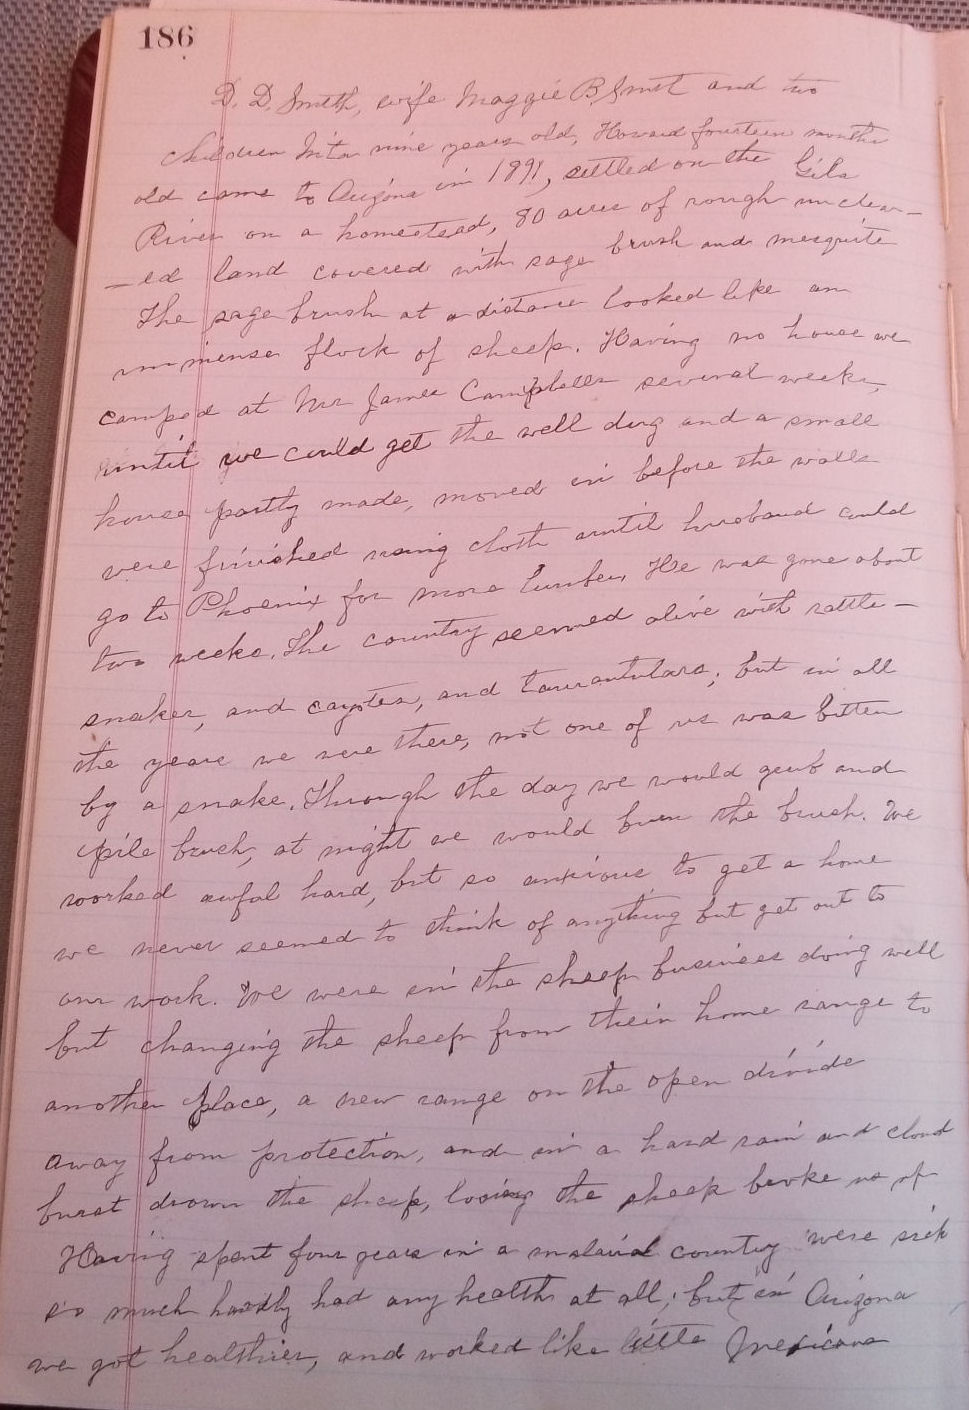 186
D. D. Smith, wife Maggie B Smit and two
children Nita nine years old, Howard fourteen months
old came to Arizona in 1891, settled on the Gila
River on a homestead, 80 acres of rough unclear-
-ed land covered with sage brush and mesquite
The sage brush at a distance looked like an
immense flock of sheep. Having no house we
camped at Mr James Campbells several weeks,
until we could get the well dug and a small
house partly made, moved in before the walls
were finished using cloth until husband could
go to Phoenix for more lumber. He was gone about
two weeks. The country seemed alive with rattle-
snakes, and cayotes, and taurantulars; but in all
the years we were there, not one of us was bitten
by a snake. Through the day we would grub and
pile brush, at night we would burn the brush. We
worked awful hard, but so anxious to get a home
we never seemed to think of anything but get out to
our work. We were in the sheep business doing well
but changing the sheep from their home range to
another place, a new range on the open divide
away from protection, and in a hard rain and cloud
burst drown the sheep, losing the sheep broke us up
Having spent four years in a malarial country were sick
so much hardly had any health at all; but in Arizona
we got healthier, and worked like little Mexicans